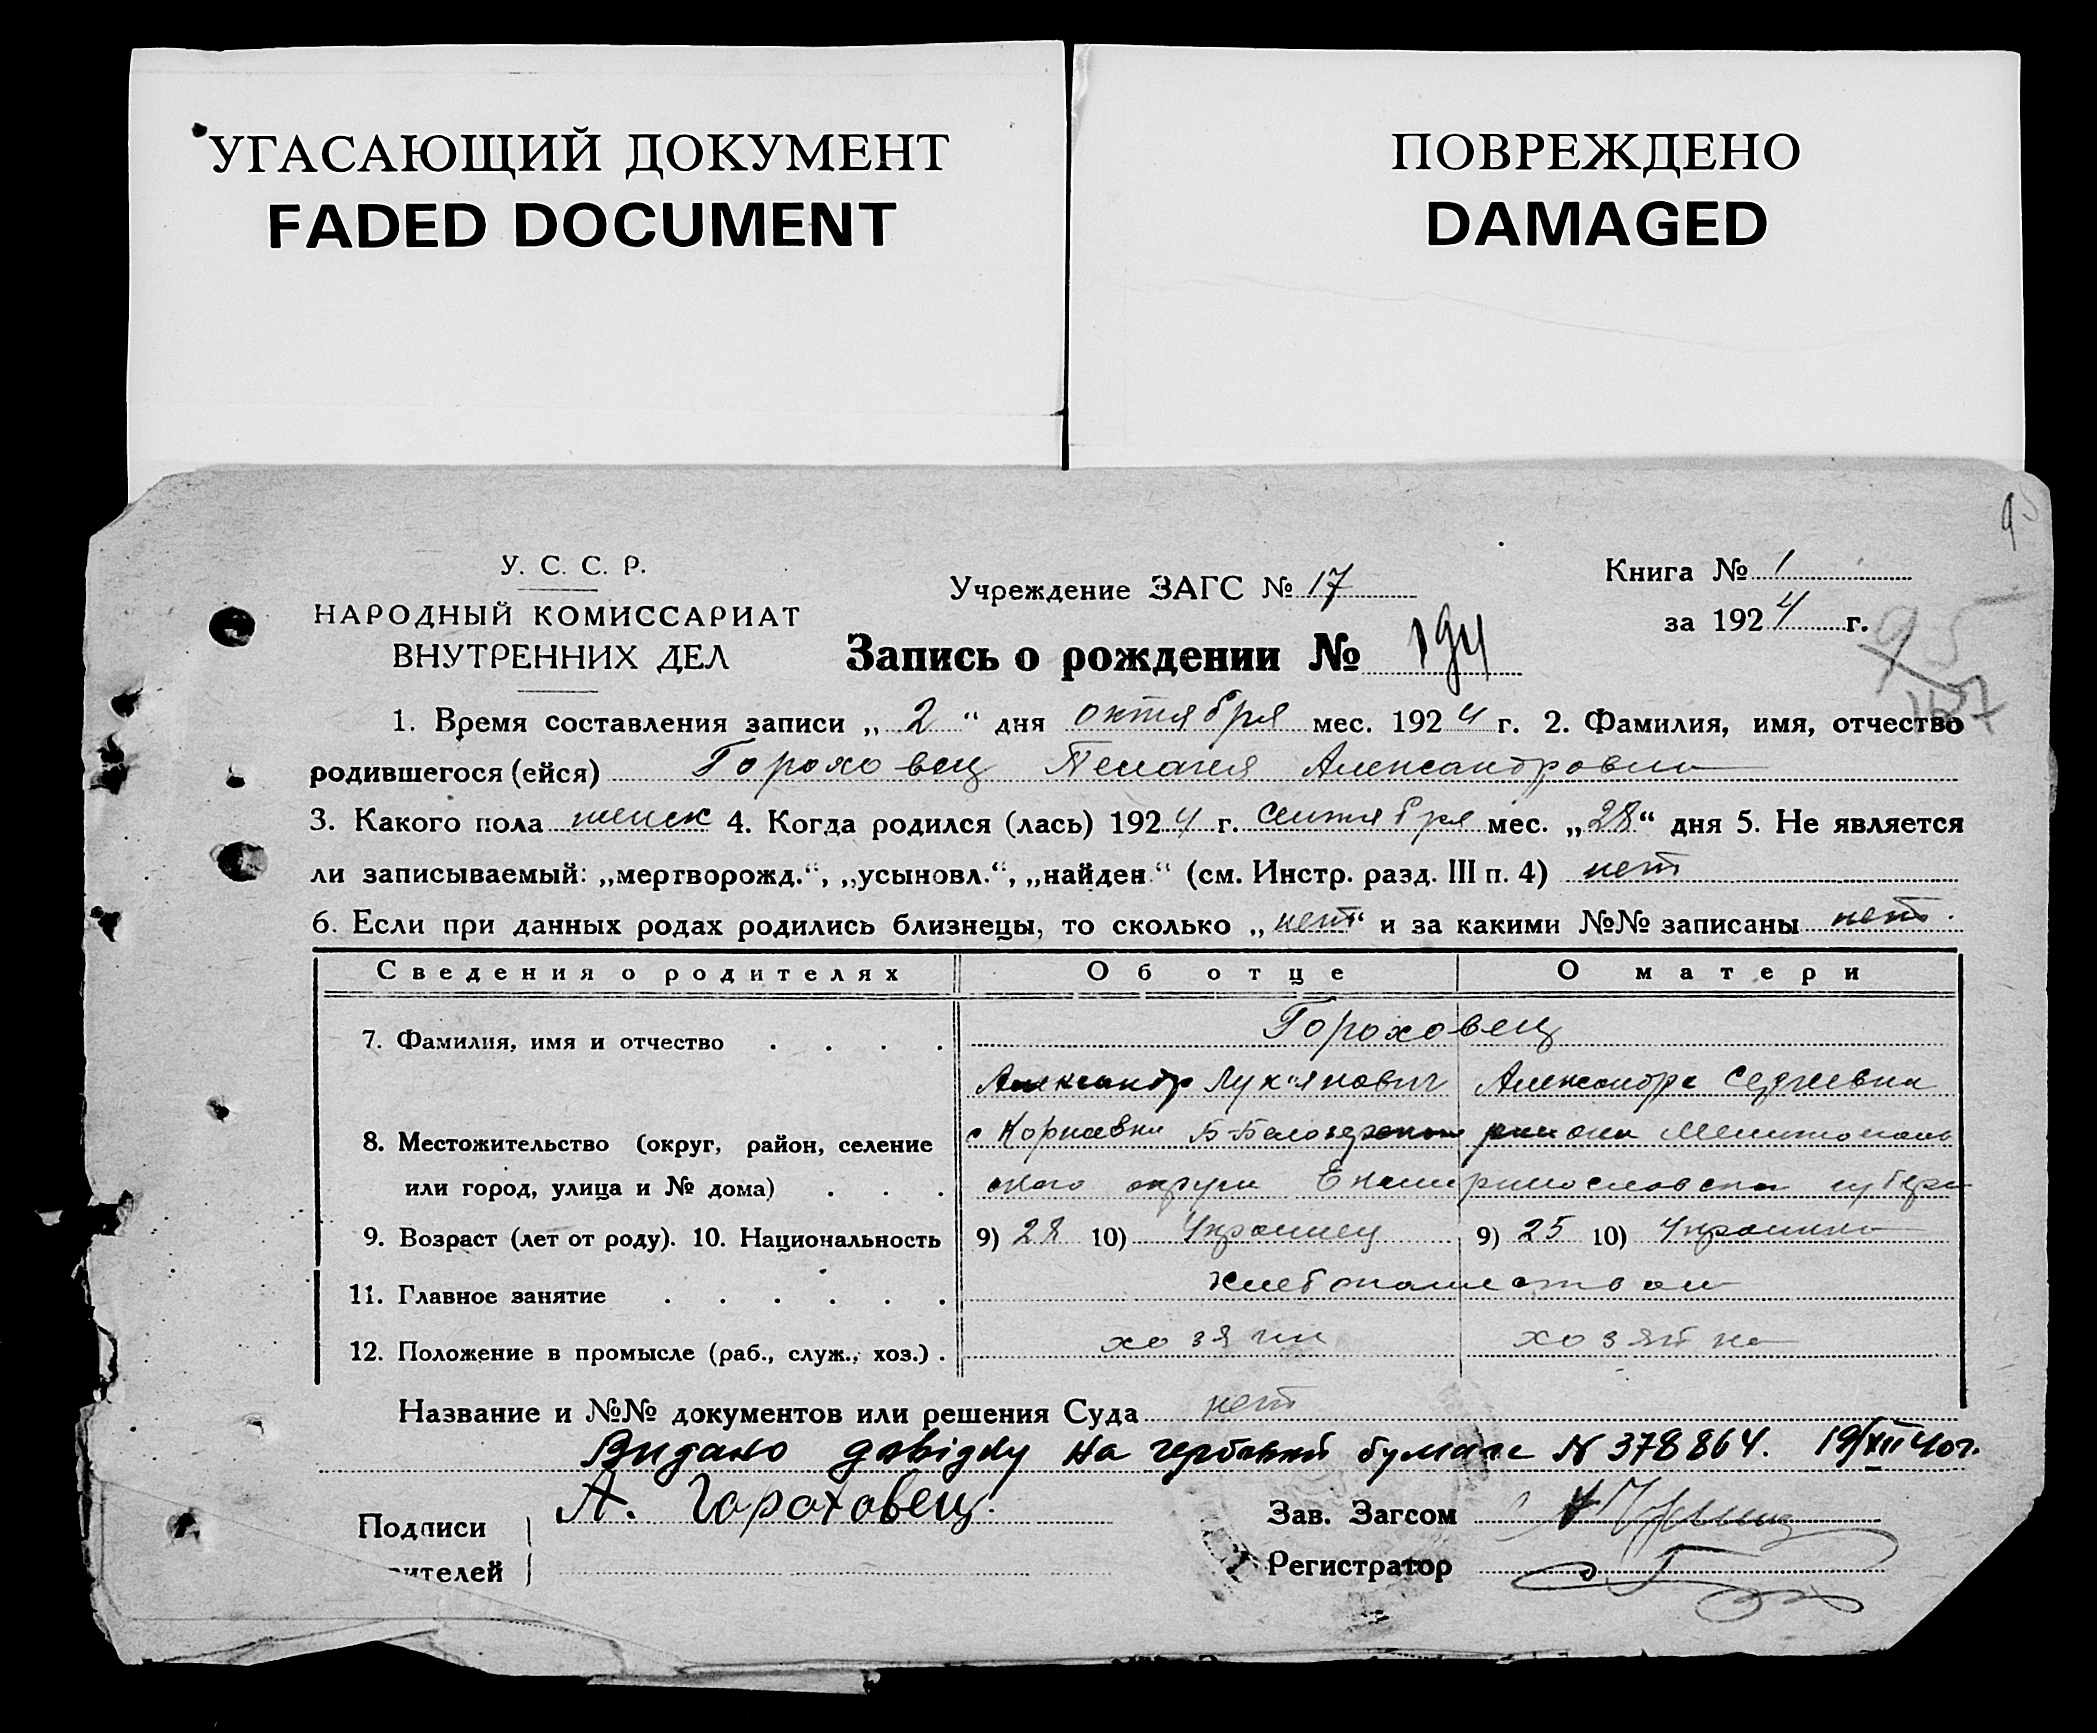 УГАСАЮЩИЙ ДОКУМЕНТ
FADED DOCUMENT
ПОВРЕЖДЕНО
DAMAGED
У. С. С. Р.
НАРОДНЫЙ КОМИССАРИАТ
ВНУТРЕННИХ ДЕЛ
Учреждение ЗАГС № 17
Книга № 1
за 1924 г.
95
Запись о рождении № 194
1. Время составления записи „2“ дня октября мес. 1924 г. 2. Фамилия, имя, отчество
родившегося (ейся) Гороховец Пелагея Александровна
3. Какого пола женск 4. Когда родился (лась) 1924 г. сентября мес. „28“ дня 5. Не является
ли записываемый: „мертворожд.“, „усыновл.“, „найден.“ (см. Инстр. разд. III п. 4) нет
6. Если при данных родах родились близнецы, то сколько „нет“ и за какими №№ записаны нет.
Сведения о родителях Об отце О матери
7. Фамилия, имя и отчество Гороховец
Александр Лук'янович Александра Сергеевна
8. Местожительство (округ, район, селение с Б-Белозерского района Мелитополь
или город, улица и № дома) ского округа Екатеринославской губерн
9. Возраст (лет от роду). 10. Национальность 9) 28 10) Украинец 9) 25 10) Украинка
11. Главное занятие хлебопашеством
12. Положение в промысле (раб., служ., хоз.) хозяин хозяйка
Название и №№ документов или решения Суда нет
Видано довідку на гербовой бумаге N 378864. 19/XII 40 г.
Подписи А. Гороховец.
ителей
Зав. Загсом
Регистратор